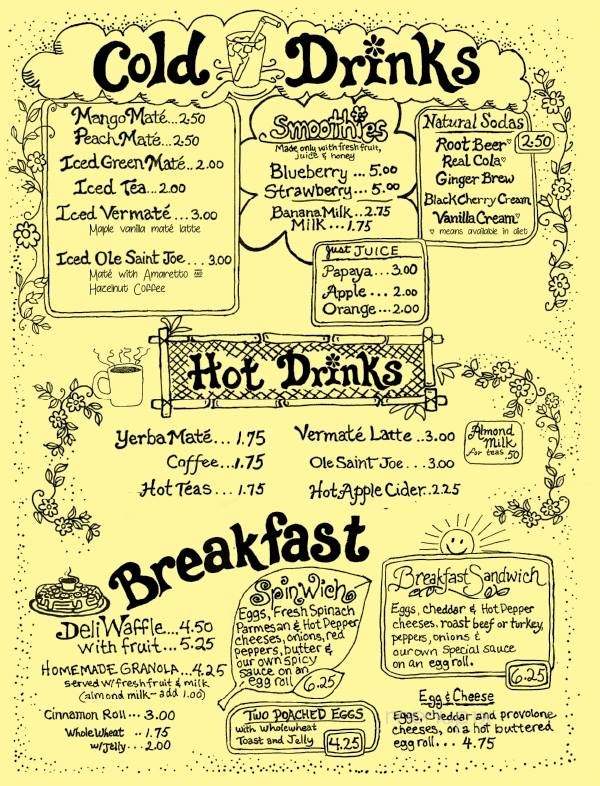 Cold Drinks
Mango Maté...2.50
Peach Maté...2.50
Iced Green Maté..2.00
Iced Tea...2.00
Iced Vermaté...3.00
Maple vanilla maté latte
Iced Ole Saint Joe...3.00
Maté with Amaretto and
Hazelnut Coffee
Smoothies
Made only with fresh fruit,
juice & honey
Blueberry ... 5.00
Strawberry... 5.00
Banana Milk..2.75
Milk...1.75
Just JUICE
Papaya...3.00
Apple ... 2.00
Orange...2.00
Natural Sodas
2.50
Root Beer♡
Real Cola♡
Ginger Brew
Black Cherry Cream
Vanilla Cream♡
♡ means available in diet
Hot Drinks
Yerba Maté... 1.75
Coffee...1.75
Hot Teas ... 1.75
Vermaté Latte ..3.00
Ole Saint Joe...3.00
Hot Apple Cider..2.25
Almond
Milk
for teas .50
Breakfast
Deli Waffle...4.50
with fruit...5.25
HOMEMADE GRANOLA...4.25
served w/fresh fruit & milk
(almond milk-add 1.00)
Cinnamon Roll... 3.00
Whole Wheat ..1.75
w/Jelly... 2.00
Spinwich
Eggs, Fresh Spinach
Parmesan & Hot Pepper
cheeses, onions, red
peppers, butter &
our own spicy
sauce on an
egg roll
6.25
TWO POACHED EGGS
with Wholewheat
Toast and Jelly
4.25
Breakfast Sandwich
Eggs, cheddar & Hot Pepper
cheeses, roast beef or turkey,
peppers, onions &
our own Special sauce
on an egg roll.
6.25
Egg & Cheese
Eggs, cheddar and provolone
cheeses, on a hot buttered
egg roll... 4.75